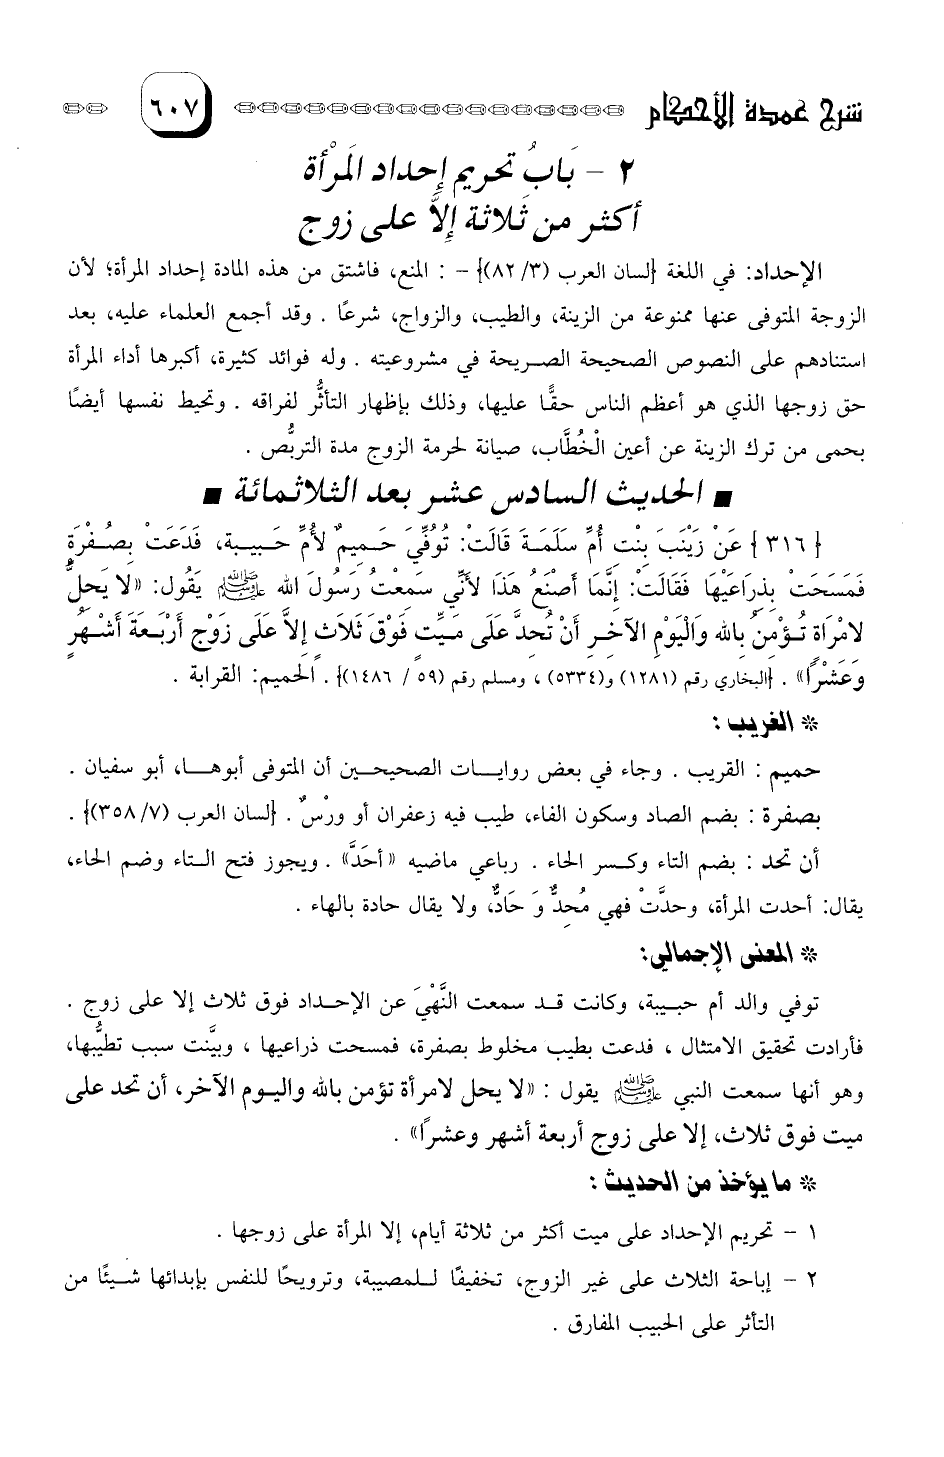 شرح عمدة الأحكام ٦٠٧
٢ - بَابُ تحريم إحداد المَرْأة
أكثر من ثَلاثة إلاَّ على زوج
الإحداد: في اللغة {لسان العرب (٣/ ٨٢)} - : المنع، فاشتق من هذه المادة إحداد المرأة؛ لأن
الزوجة المتوفى عنها ممنوعة من الزينة، والطيب، والزواج، شرعًا . وقد أجمع العلماء عليه، بعد
استنادهم على النصوص الصحيحة الصريحة في مشروعيته . وله فوائد كثيرة، أكبرها أداء المرأة
حق زوجها الذي هو أعظم الناس حقًّا عليها، وذلك بإظهار التأثُّر لفراقه . وتحيط نفسها أيضًا
بحمى من ترك الزينة عن أعين الْخُطَّاب، صيانة لحرمة الزوج مدة التربُّص .
■ الحديث السادس عشر بعد الثلاثمائة ■
{ ٣١٦ } عَنْ زَيْنَبَ بِنْتِ أُمِّ سَلَمَةَ قَالَتْ: تُوُفِّيَ حَمِيمٌ لأُمِّ حَبِيبة، فَدَعَتْ بِصُفْرَةٍ
فَمَسَحَتْ بِذِرَاعَيْهَا فَقَالَتْ: إِنَّمَا أَصْنَعُ هَذَا لأَنِّي سَمِعْتُ رَسُولَ الله ﷺ يَقُول: «لا يَحِلُّ
لامْرَأَة تُؤْمِنُ بِالله وَالْيَوْمِ الآخِرِ أَنْ تُحدَّ عَلَى مَيِّتٍ فَوْقَ ثَلاثٍ إِلاَّ عَلَى زَوْجٍ أَرْبَعَةَ أَشْهُرٍ
وَعَشْرًا» . {البخاري رقم (١٢٨١) و(٥٣٣٤) ، ومسلم رقم (٥٩ / ١٤٨٦)} . الحميم: القرابة .
* الغريب :
حميم : القريب . وجاء في بعض روايات الصحيحين أن المتوفى أبوها، أبو سفيان .
بصفرة : بضم الصاد وسكون الفاء، طيب فيه زعفران أو ورْسٌ . {لسان العرب (٧/ ٣٥٨)} .
أن تحد : بضم التاء وكسر الحاء . رباعي ماضيه «أحَدَّ» . ويجوز فتح التاء وضم الحاء،
يقال: أحدت المرأة، وحدَّتْ فهي مُحِدٌّ وَ حَادٌّ، ولا يقال حادة بالهاء .
* المعنى الإجمالي:
توفي والد أم حبيبة، وكانت قد سمعت النَّهْيَ عن الإحداد فوق ثلاث إلا على زوج .
فأرادت تحقيق الامتثال ، فدعت بطيب مخلوط بصفرة، فمسحت ذراعيها ، وبيَّنت سبب تطيُّبها،
وهو أنها سمعت النبي ﷺ يقول : «لا يحل لامرأة تؤمن بالله واليوم الآخر، أن تحد على
ميت فوق ثلاث، إلا على زوج أربعة أشهر وعشرًا» .
* ما يؤخذ من الحديث :
١ - تحريم الإحداد على ميت أكثر من ثلاثة أيام، إلا المرأة على زوجها .
٢ - إباحة الثلاث على غير الزوج، تخفيفًا للمصيبة، وترويحًا للنفس بإبدائها شيئًا من
التأثر على الحبيب المفارق .